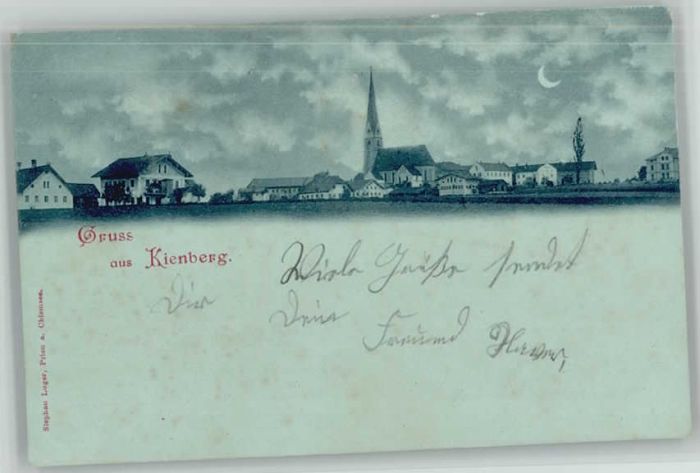 Gruss
aus Kienberg.
Viele Grüße sendet
Dir Dein
Freund
Stephan Luger, Prien a. Chiemsee.